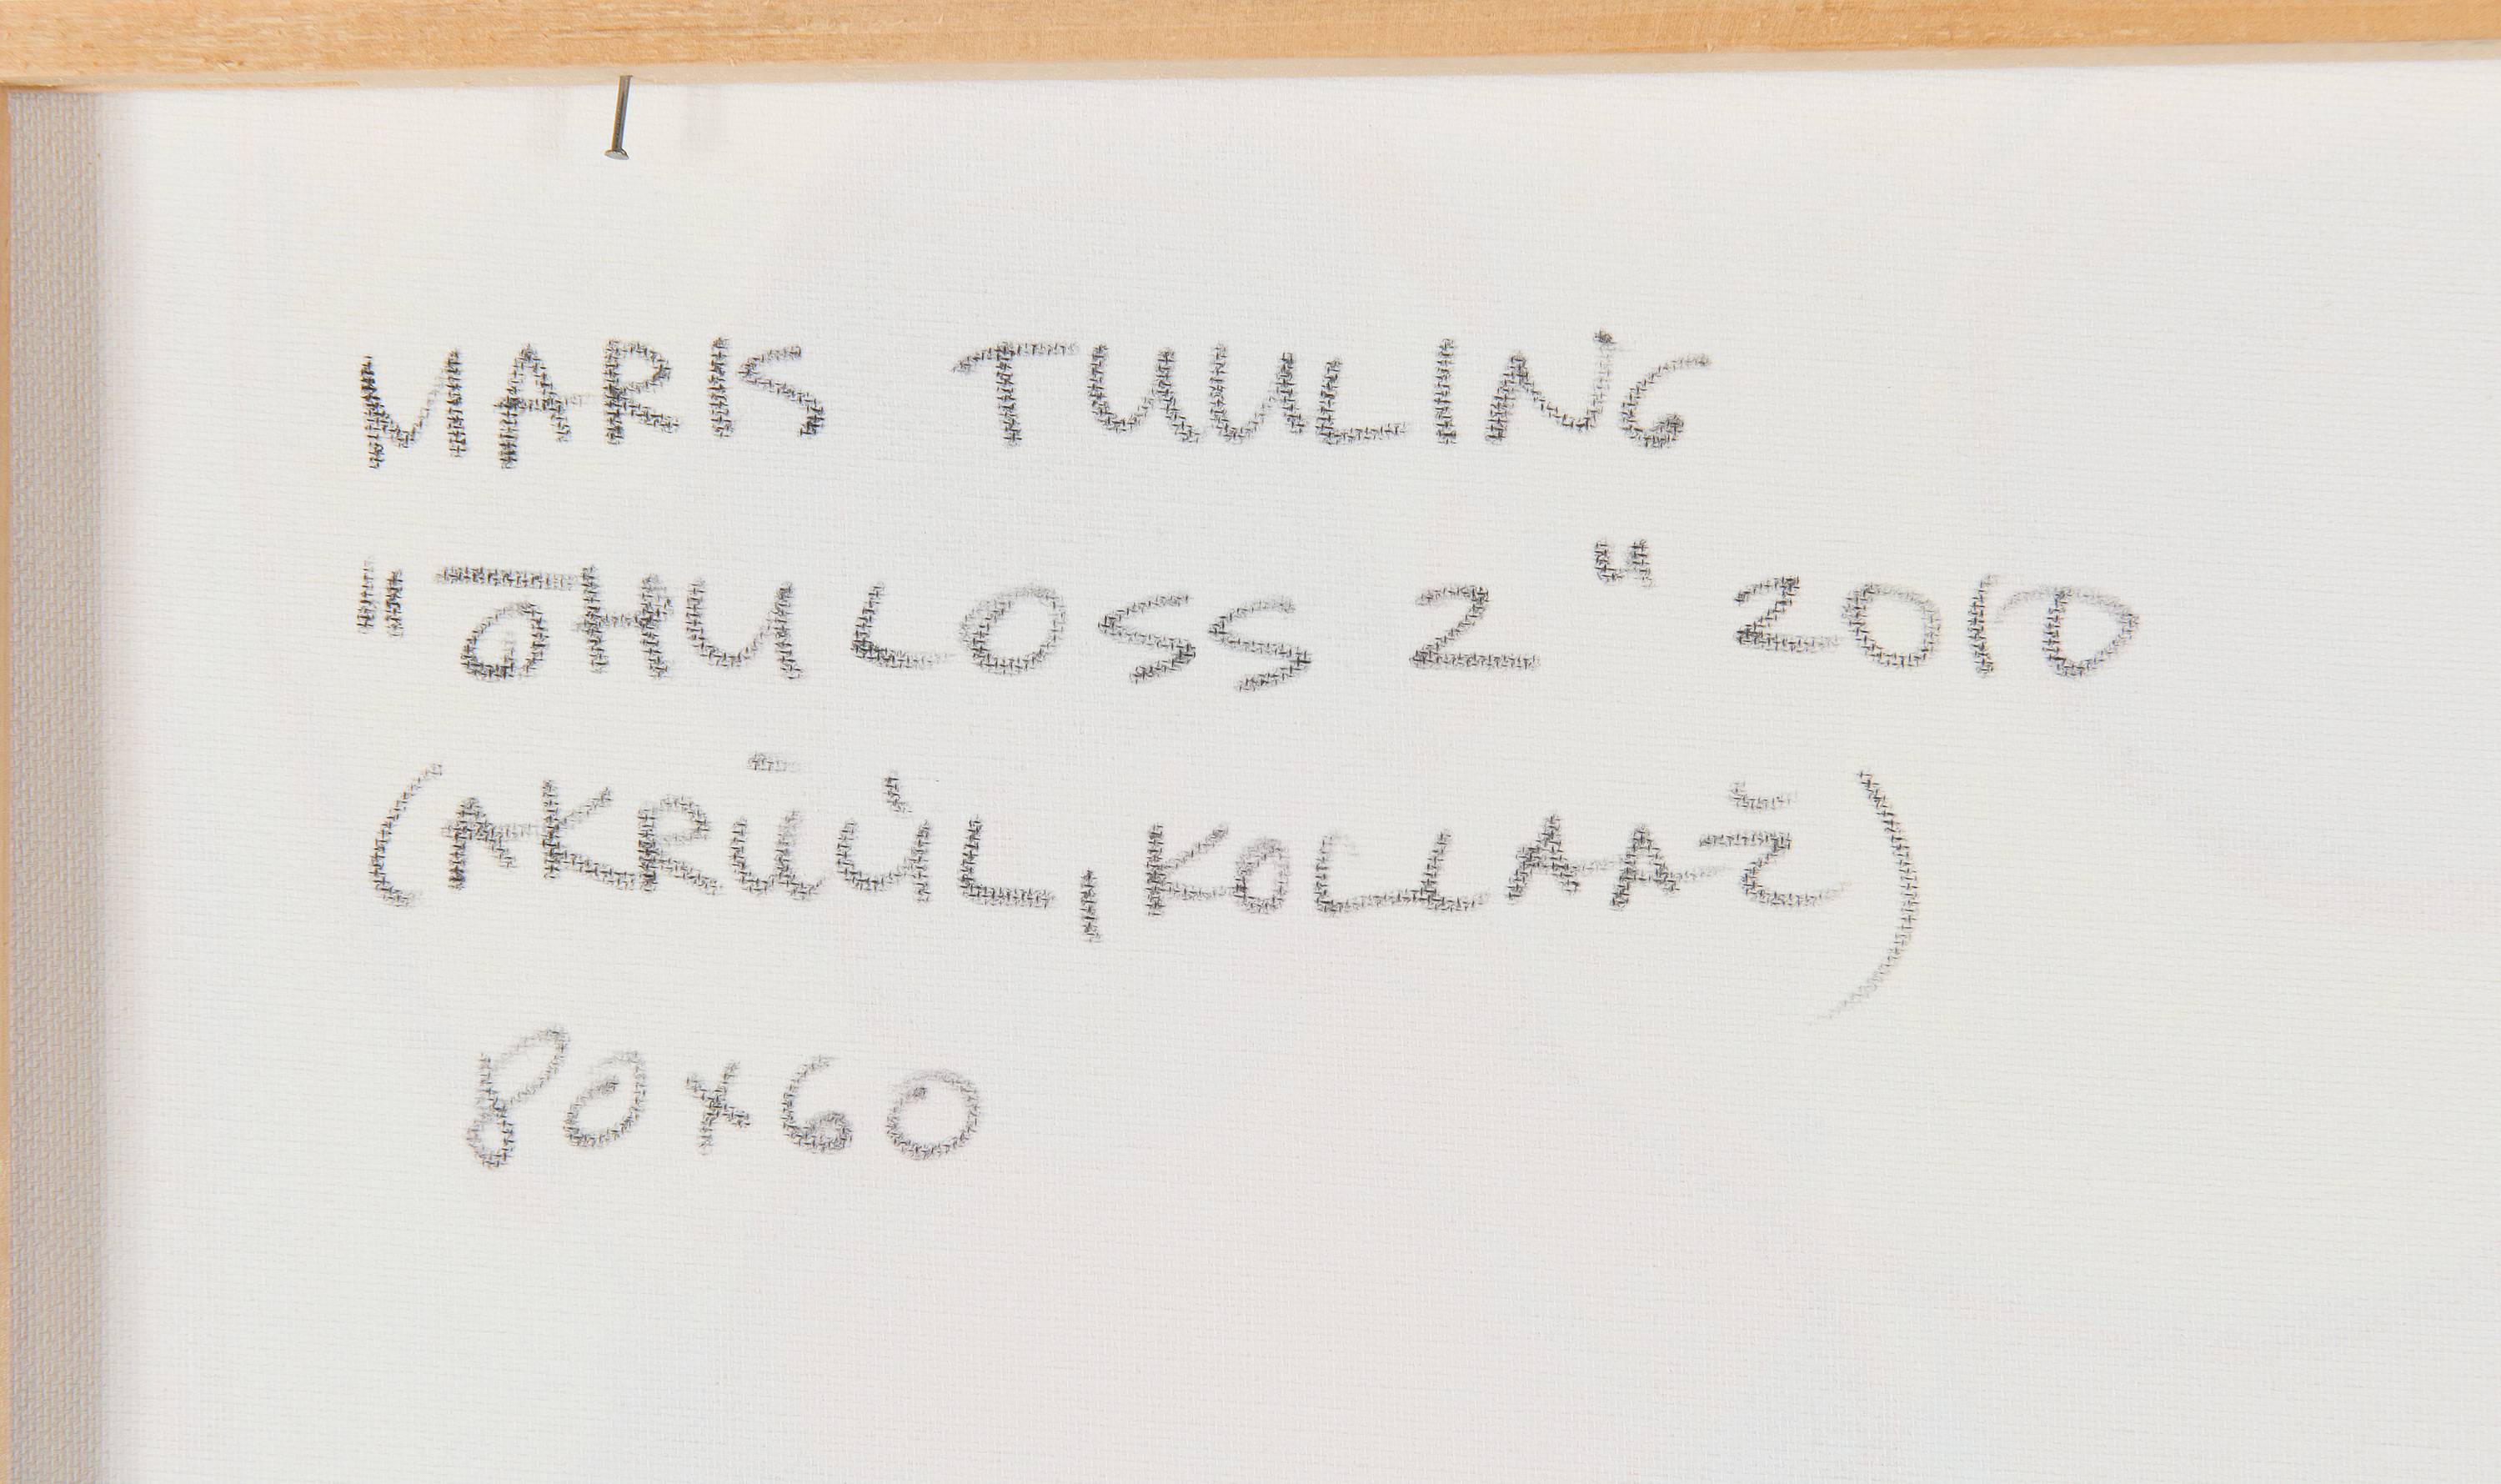 MARIS TUULING
"ÕHULOSS 2" 2010
(AKRÜÜL, KOLLAAŽ)
80x60